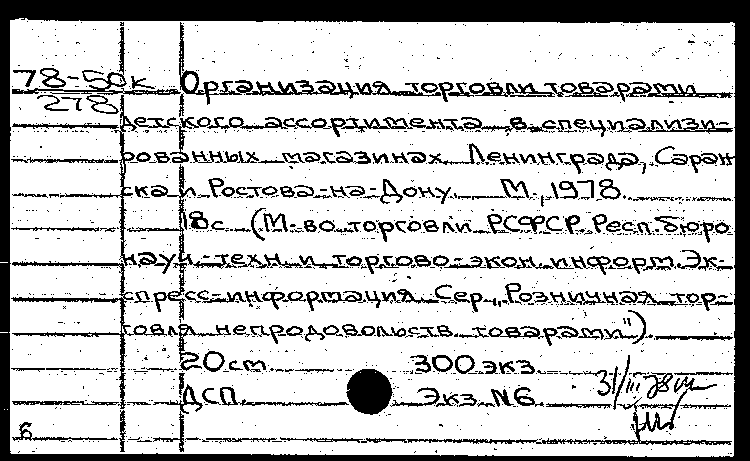 78-50к Организация торговли товарами
278
детского ассортимента в специализи-
рованных магазинах Ленинграда, Саран
ска и Ростова-на-Дону. М., 1978.
18с (М-во торговли РСФСР. Респ. бюро
науч.-техн. и торгово-экон. информ. Эк-
спресс-информация. Сер. „Розничная тор-
говля непродовольств. товарами")
20 ст. 300 экз.
ДСП. Экз. N6.
31/III 78